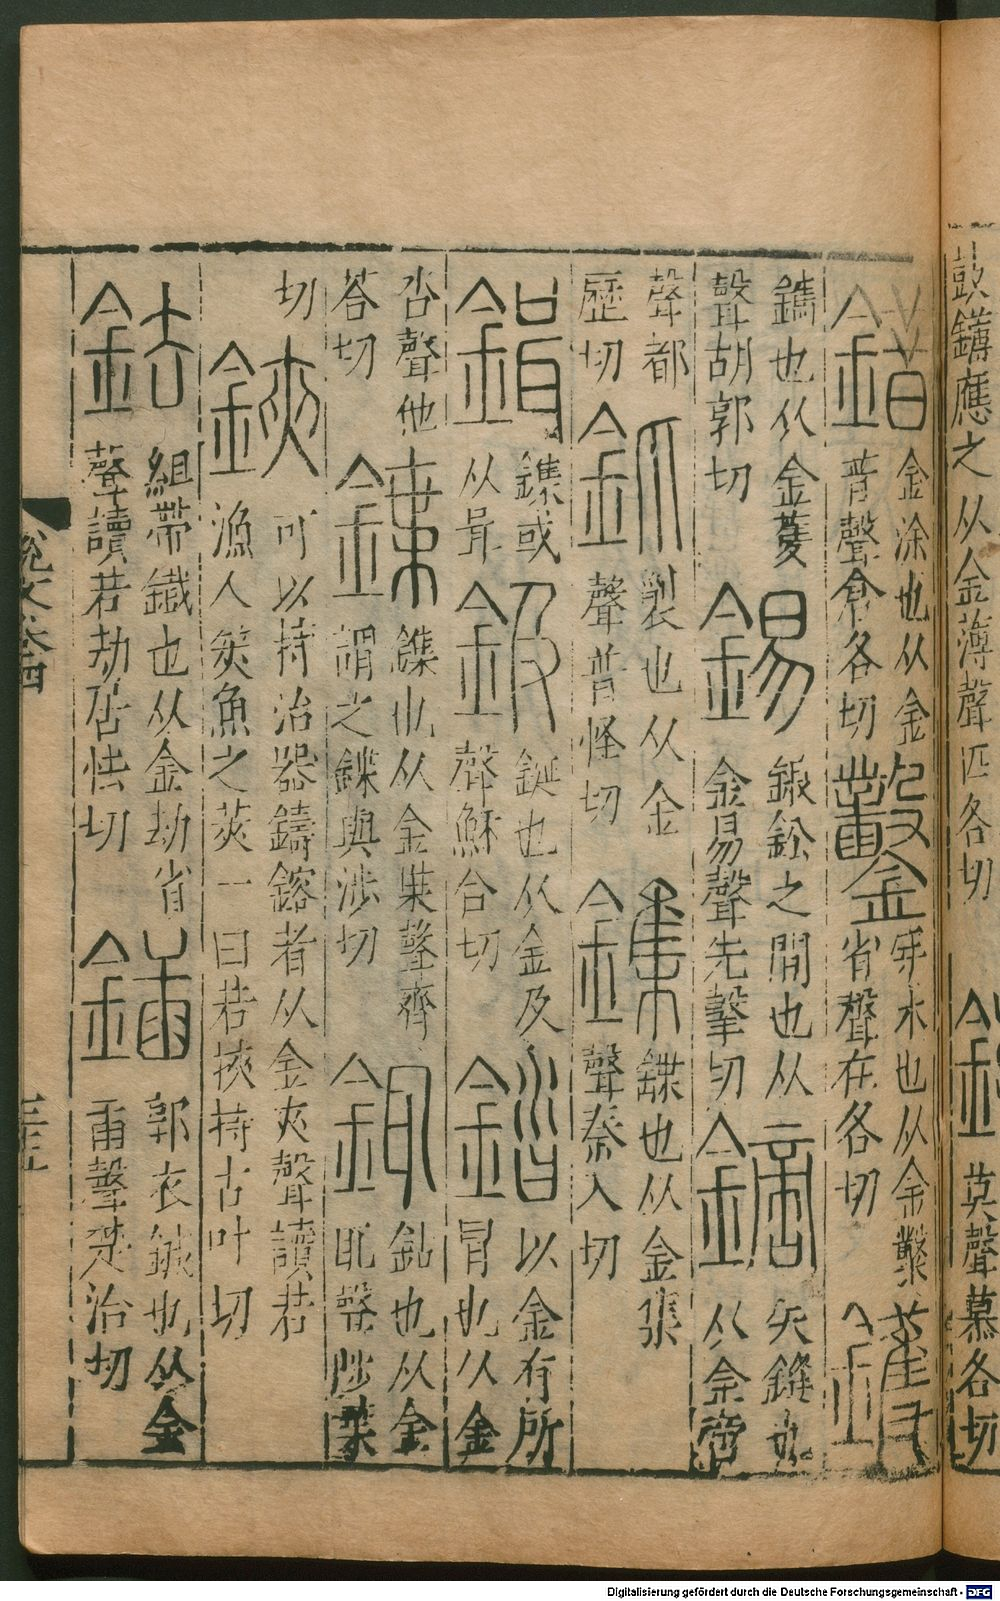 鼓鏄應之从金薄聲匹各切 莫聲慕各切
錯 金涂也从金昔聲倉各切 鑿 穿木也从金糳省聲在各切 鑊
鑴也从金蒦聲胡郭切 錫 銀鉛之間也从金易聲先擊切 鏑 矢鏠也从金啻
聲都歷切 釽 裂也从金聲普怪切 鏶 鍱也从金集聲秦入切
鍓 鏶或从咠 鈒 鋋也从金及聲穌合切 錔 以金有所冒也从金
沓聲他荅切 鍱 鏶也从金枼聲齊謂之鍱與涉切 銸 鉆也从金耴聲陟葉
切 鋏 可以持冶器鑄鎔者从金夾聲讀若漁人莢魚之莢一曰若挾持古叶切
鉣 組帶鐵也从金劫省聲讀若劫居怯切 鍤 郭衣鍼也从金臿聲楚洽切
說文卷四 三十五
Digitalisierung gefördert durch die Deutsche Forschungsgemeinschaft - DFG